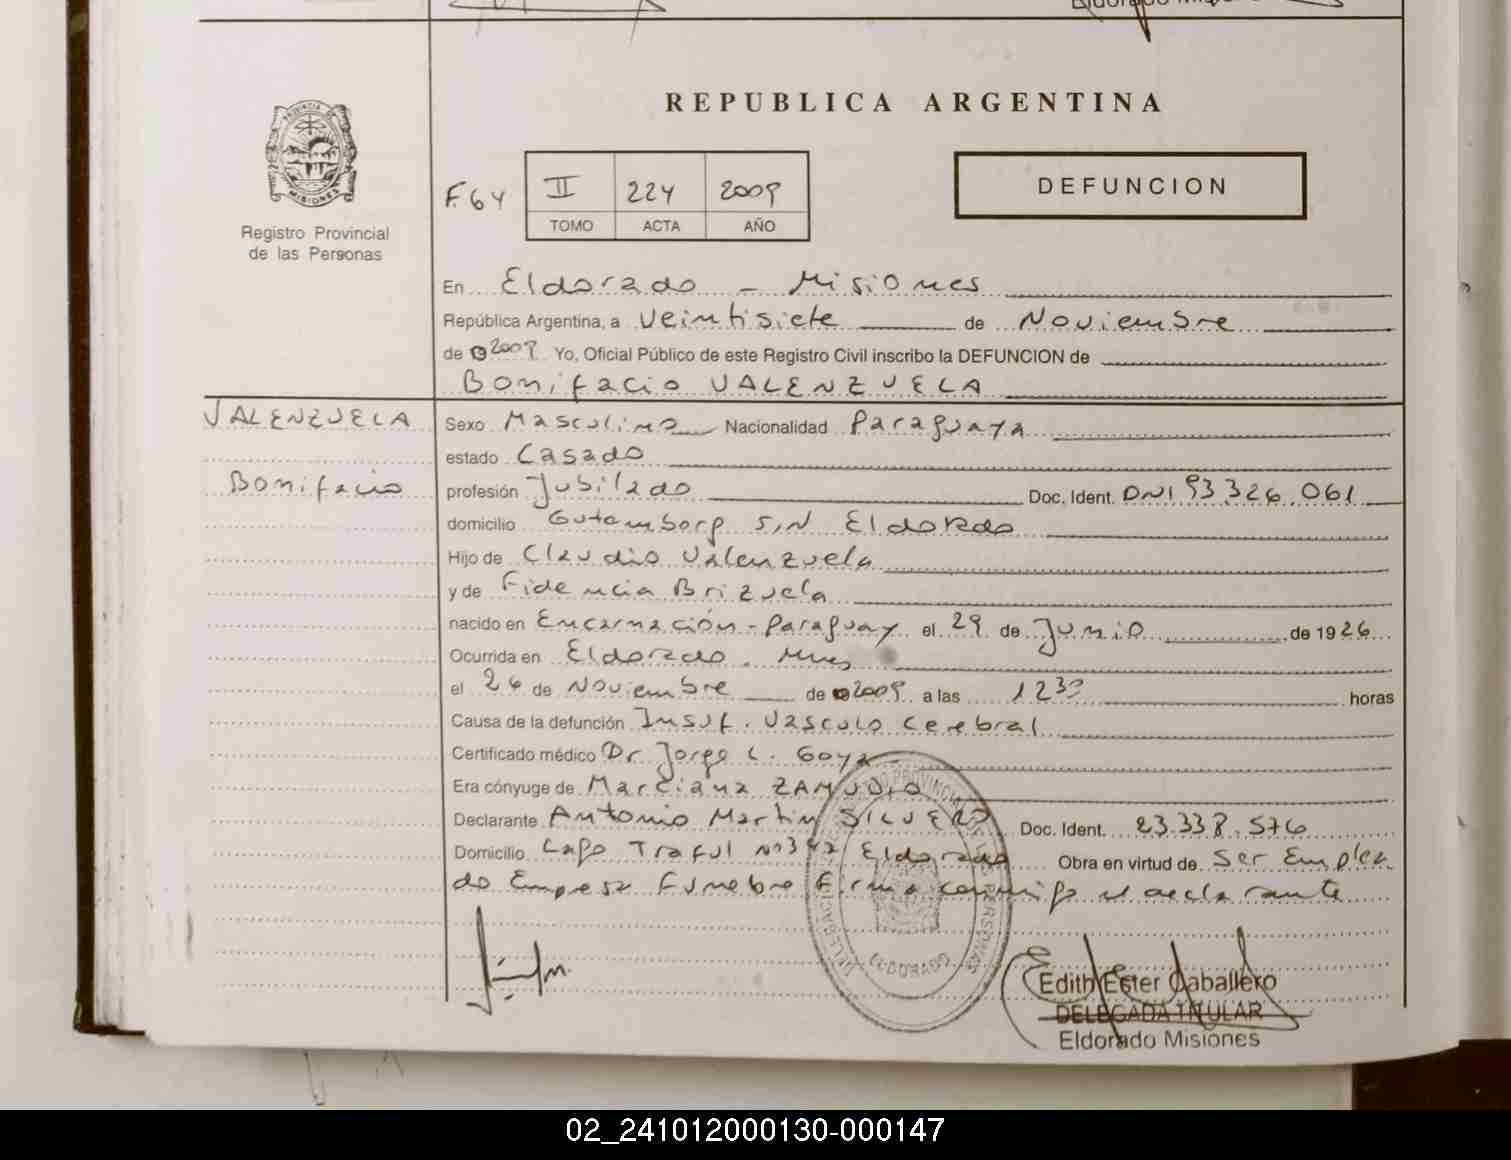 REPUBLICA ARGENTINA
DEFUNCION
F. 64 II 224 2009
TOMO ACTA AÑO
PROVINCIA DE MISIONES
Registro Provincial
de las Personas
En Eldorado - Misiones
República Argentina, a veintisiete de Noviembre
de 2009 Yo, Oficial Público de este Registro Civil inscribo la DEFUNCION de
Bonifacio VALENZUELA
VALENZUELA
Bonifacio
Sexo Masculino Nacionalidad Paraguaya
estado Casado
profesión Jubilado Doc. Ident. DNI 93.326.061
domicilio Gutemberg S/N Eldorado
Hijo de Claudio Valenzuela
y de Fidencia Brizuela
nacido en Encarnación - Paraguay el 29 de Junio de 1926
Ocurrida en Eldorado - Mnes
el 26 de Noviembre de 2009 a las 12 30 horas
Causa de la defunción Insuf. Vasculo Cerebral
Certificado médico Dr. Jorge L. Goya
Era cónyuge de Marciana ZAMUDIO
Declarante Antonio Martin SILVERO Doc. Ident. 23.338.576
Domicilio Lago Traful Nº 342 Eldorado Obra en virtud de ser Emplea
do Empresa Funebre Firma conmigo el declarante
ELDORADO
Edith Ester Caballero
DELEGADA TITULAR
Eldorado Misiones
02_241012000130-000147